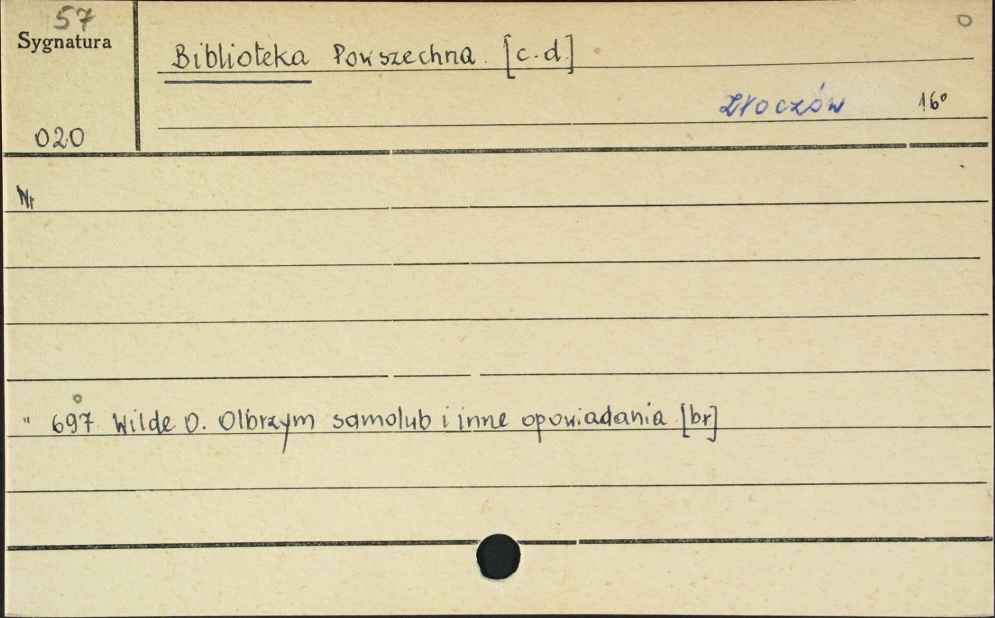 57
Sygnatura
020
Biblioteka Powszechna [c.d.]
Złoczów 16°
Nr
" 697 Wilde O. Olbrzym samolub i inne opowiadania [br]